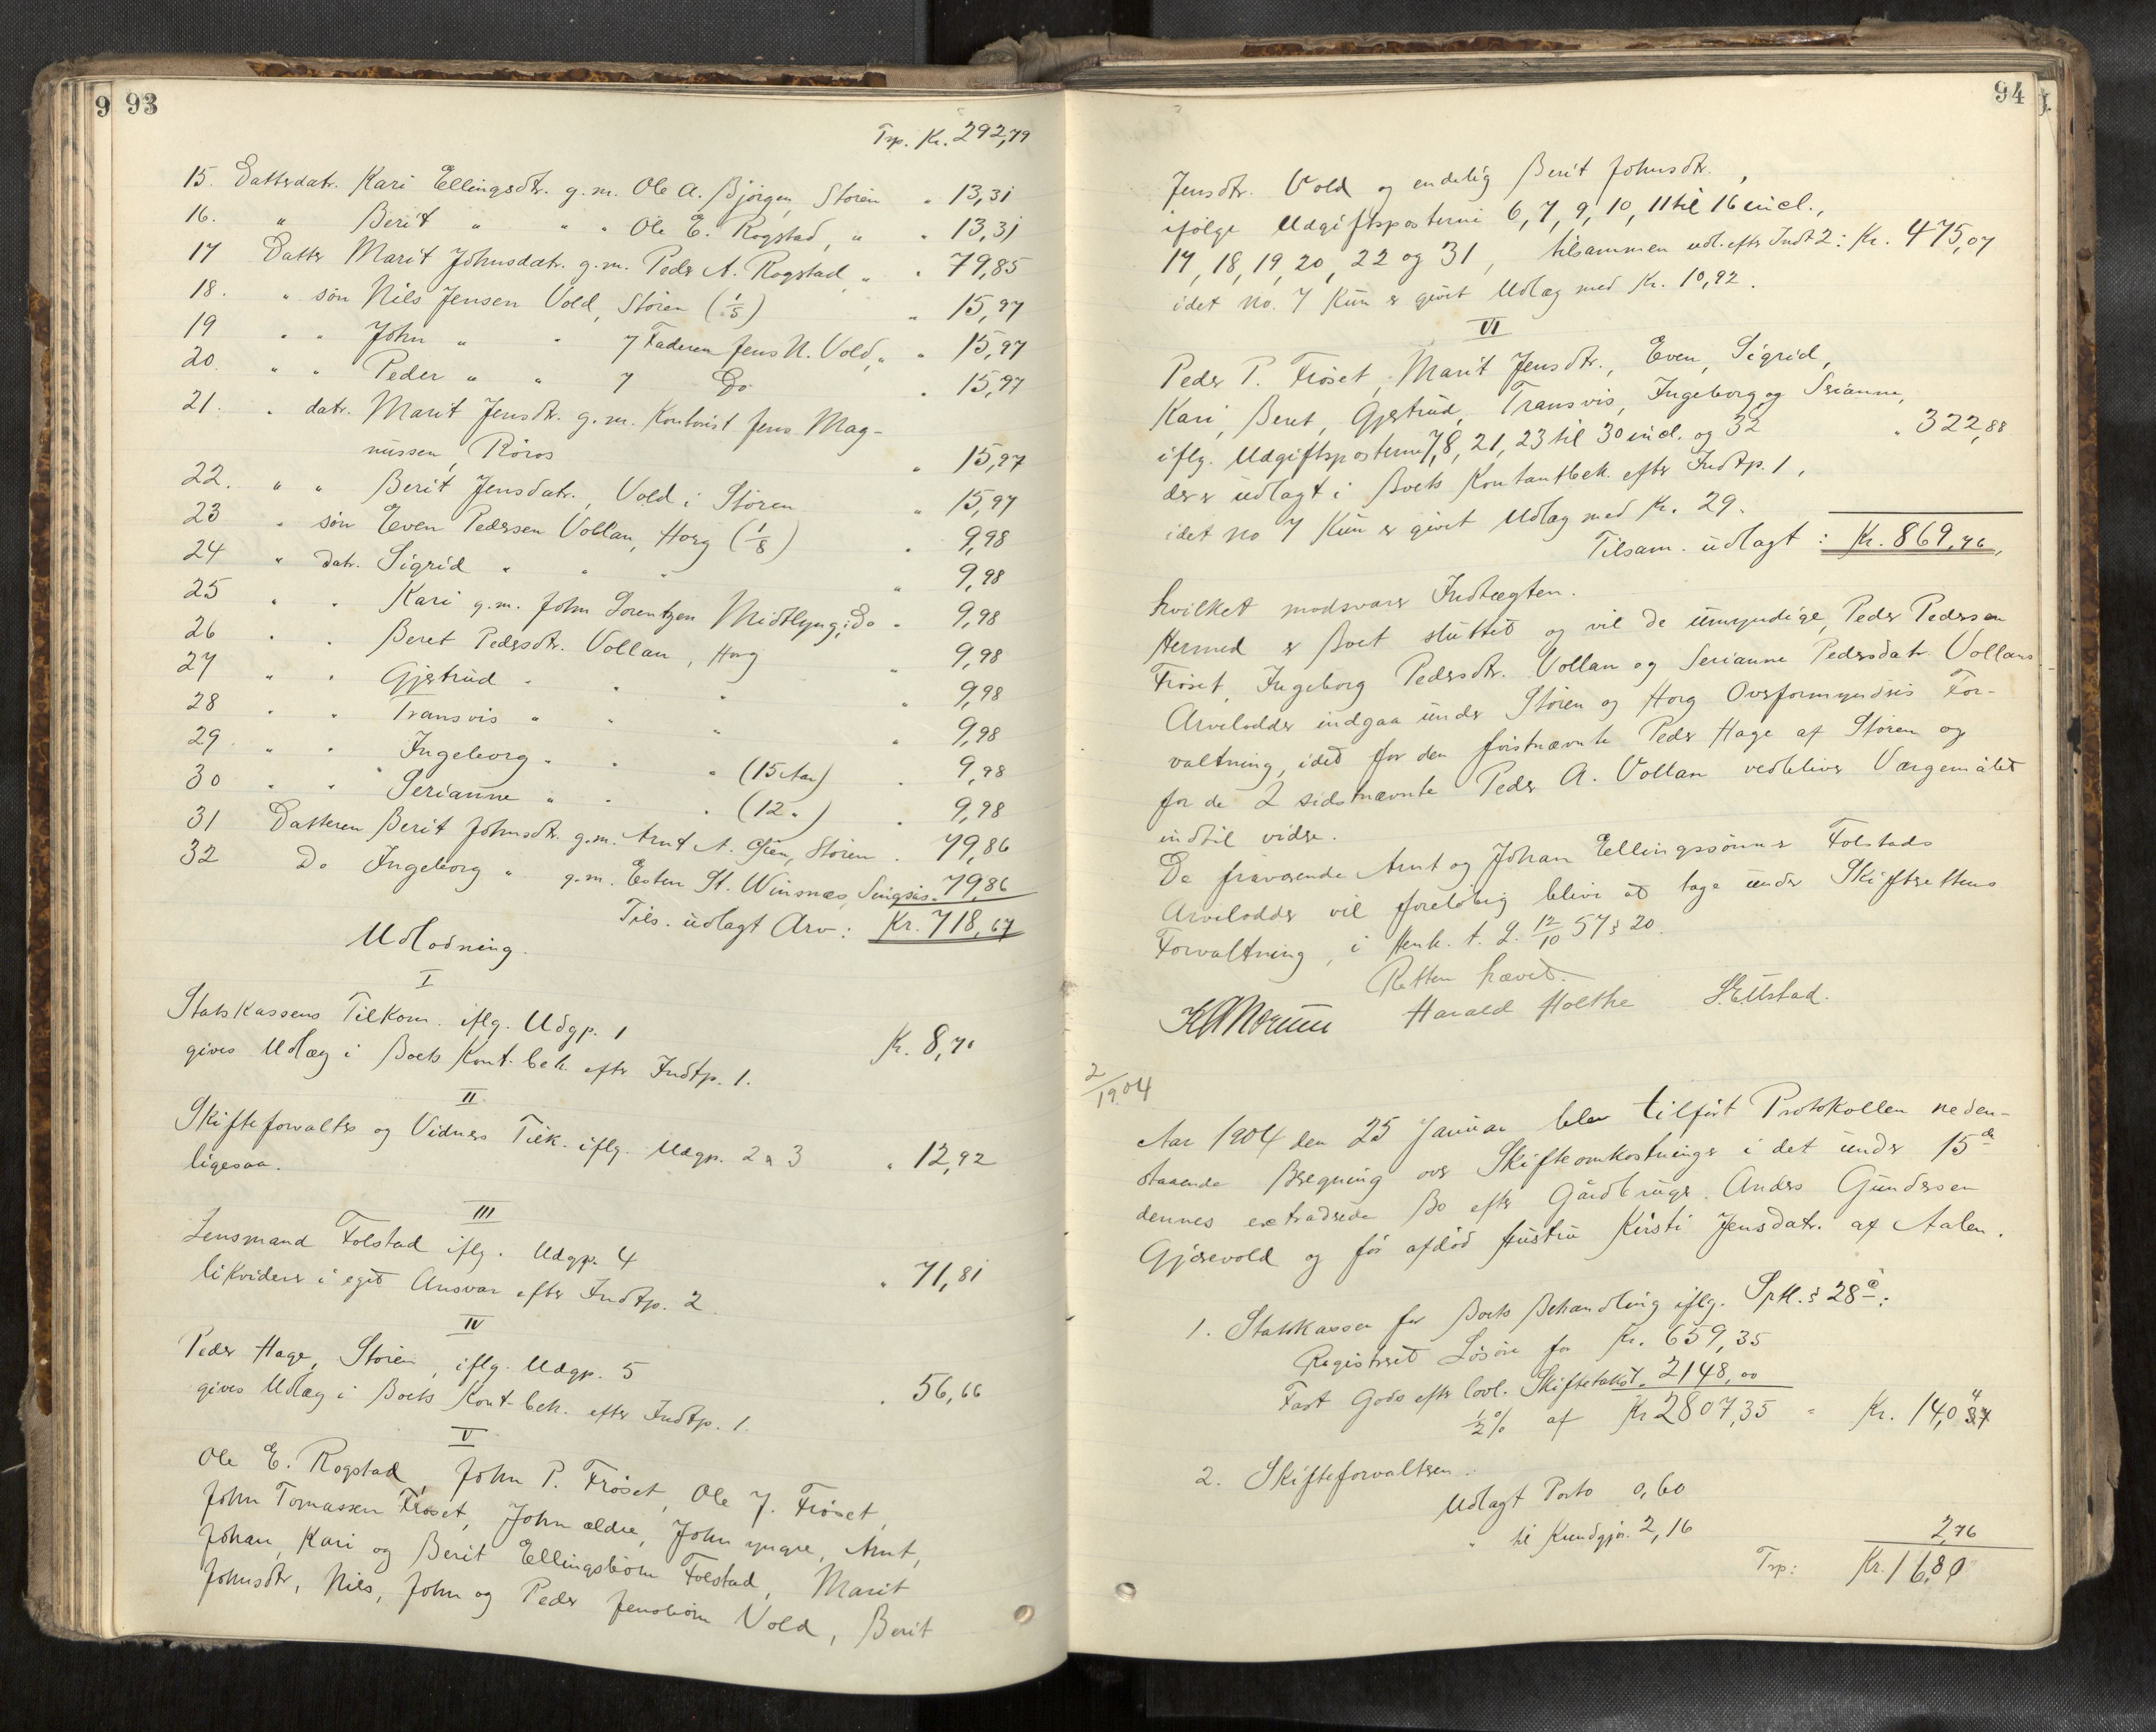 9 93
Trp. Kr. 292,79
15. Dattrdatr. Kari Ellingsdtr. g.m. Ole A. Bjørgen, Støren " 13,31
16. " Berit " " " Ole E. Rogstad, " " 13,31
17 Datter Marit Johnsdatr. g.m. Peder A. Rogstad, " " 79,85
18. " søn Nils Jensen Vold, Støren (1/5) " 15,97
19 " " John " " Faderen Jens N. Vold, " " 15,97
20. " " Peder " " Do " 15,97
21. " datr. Marit Jensdtr. g.m. Kontorist Jens Mag-
nussen, Røros " 15,97
22. " " Berit Jensdatr., Vold i Støren " 15,97
23 " søn Even Pedersen Vollan, Horg (1/8) " 9,98
24 " datr. Sigrid " " " " 9,98
25 " " Kari g.m. John Lorentzen Midtlyng, Do " 9,98
26 " " Beret Pedersdtr. Vollan, Horg " 9,98
27 " " Gjertrud " " " " 9,98
28 " " Transvis " " " " 9,98
29 " " Ingeborg " " " (15 Aar) " 9,98
30 " " Serianne " " " (12 ") " 9,98
31 Datteren Berit Johnsdtr. g.m. Arnt A. Gien, Støren " 79,86
32 Do Ingeborg " g.m. Esten St. Winsnæs, Singsås " 79,86
Tils. udlagt Arv: Kr. 718,67
Udlodning.
I
Statskassens Tilkom. iflg. Udgp. 1
gives Udlæg i Boets Kont. beh. efter Indtp. 1. Kr. 8,70
II
Skifteforvalter og Vidners Tilk. iflg. Udgp. 2 & 3
ligesaa. " 12,92
III
Lensmand Folstad iflg. Udgp. 4
likviderer i eget Ansvar efter Indtp. 2. " 71,81
IV
Peder Hage, Støren, iflg. Udgp. 5
gives Udlæg i Boets Kont. beh. efter Indtp. 1. " 56,66
V
Ole E. Rogstad, John P. Frøset, Ole J. Frøset,
John Tomassen Frøset, John ældre, John yngre, Arnt,
Johan, Kari og Berit Ellingsbørn Folstad, Marit
Johnsdtr, Nils, John og Peder Jensbørn Vold, Berit
94
Jensdtr. Vold og endelig Berit Johnsdtr.,
ifølge Udgiftsposterne 6, 7, 9, 10, 11 til 16 incl.,
17, 18, 19, 20, 22 og 31, tilsammen udl. efter Indt 2: Kr. 475,07
idet No. 7 kun er givet Udlæg med Kr. 10,92.
VI
Peder P. Frøset, Marit Jensdtr., Even, Sigrid,
Kari, Beret, Gjertrud, Transvis, Ingeborg og Serianne,
iflg. Udgiftsposterne 7, 8, 21, 23 til 30 incl. og 32 " 322,88
der er udlagt i Boets Kontantbeh. efter Indtp. 1,
idet No 7 kun er givet Udlæg med Kr. 29.
Tilsam. udlagt: Kr. 869,46,
hvilket modsvarer Indtægten.
Hermed er Boet sluttet og vil de umyndige, Peder Pedersen
Frøset, Ingeborg Pedersdtr. Vollan og Serianne Pedersdatr. Vollans
Arvelodder indgaa under Støren og Horg Overformynderis For-
valtning, idet for den førstnævnte Peder Hage af Støren og
for de 2 sidstnævnte Peder A. Vollan vedbliver Værgemålet
indtil videre.
De fraværende Arnt og Johan Ellingssønner Folstads
Arvelodder vil foreløbig blive at tage under Skifterettens
Forvaltning, i Henh. t. L. 12/10 57 § 20.
Retten hævet.
Harald Holthe
2/1904
Aar 1904 den 25 Januar blev tilført Protokollen neden-
staaende Beregning over Skifteomkostninger i det under 15de
dennes extraderede Bo efter Gårdbruger Anders Gundersen
Gjærevold og før afdød Hustru Kirsti Jensdatr. af Aalen.
1. Statskassen for Boets Behandling iflg. Sptl. § 28 a:
Registreret Løsøre for Kr. 659,35
Fast Gods efter lovl. Skiftetakst " 2148,00
1/2 % af Kr 2807,35 = Kr. 14,04
2. Skifteforvalteren:
Udlagt Porto 0,60
" til Kundgjør. 2,16 2,76
Trp: Kr. 16,80